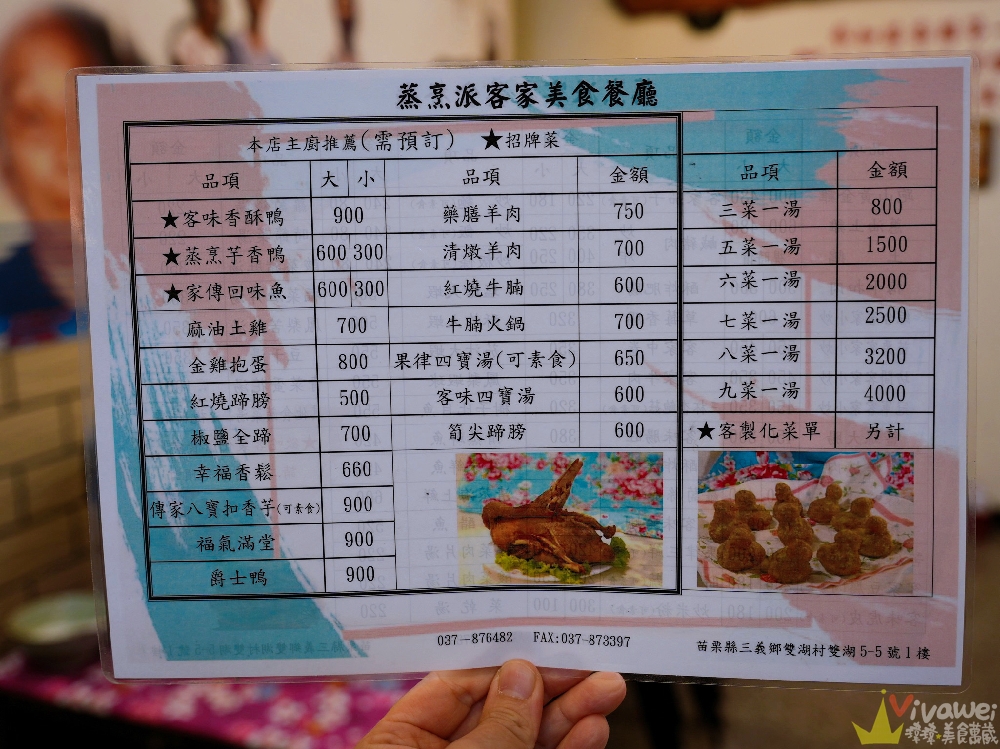 蒸烹派客家美食餐廳
本店主廚推薦(需預訂) ★招牌菜
品項 大 小 品項 金額
★客味香酥鴨 900 藥膳羊肉 750
★蒸烹芋香鴨 600 300 清燉羊肉 700
★家傳回味魚 600 300 紅燒牛腩 600
麻油土雞 700 牛腩火鍋 700
金雞抱蛋 800 果律四寶湯(可素食) 650
紅燒蹄膀 500 客味四寶湯 600
椒鹽全蹄 700 筍尖蹄膀 600
幸福香鬆 660
傳家八寶扣香芋(可素食) 900
福氣滿堂 900
爵士鴨 900
品項 金額
三菜一湯 800
五菜一湯 1500
六菜一湯 2000
七菜一湯 2500
八菜一湯 3200
九菜一湯 4000
★客製化菜單 另計
037-876482 FAX:037-873397
苗栗縣三義鄉雙湖村雙湖5-5號1樓
Vivawei